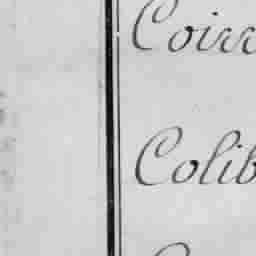 Coirr
Colib